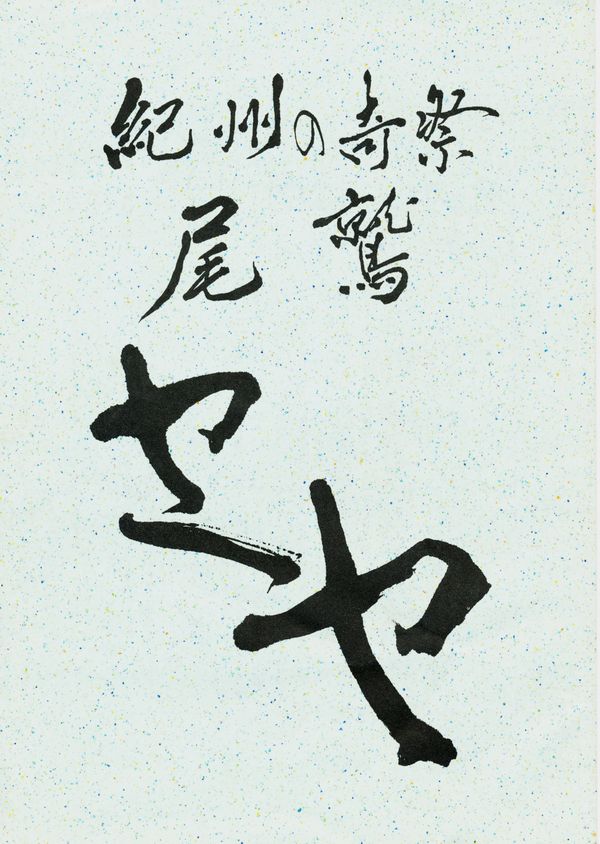 紀州の奇祭
尾鷲
ヤーヤ